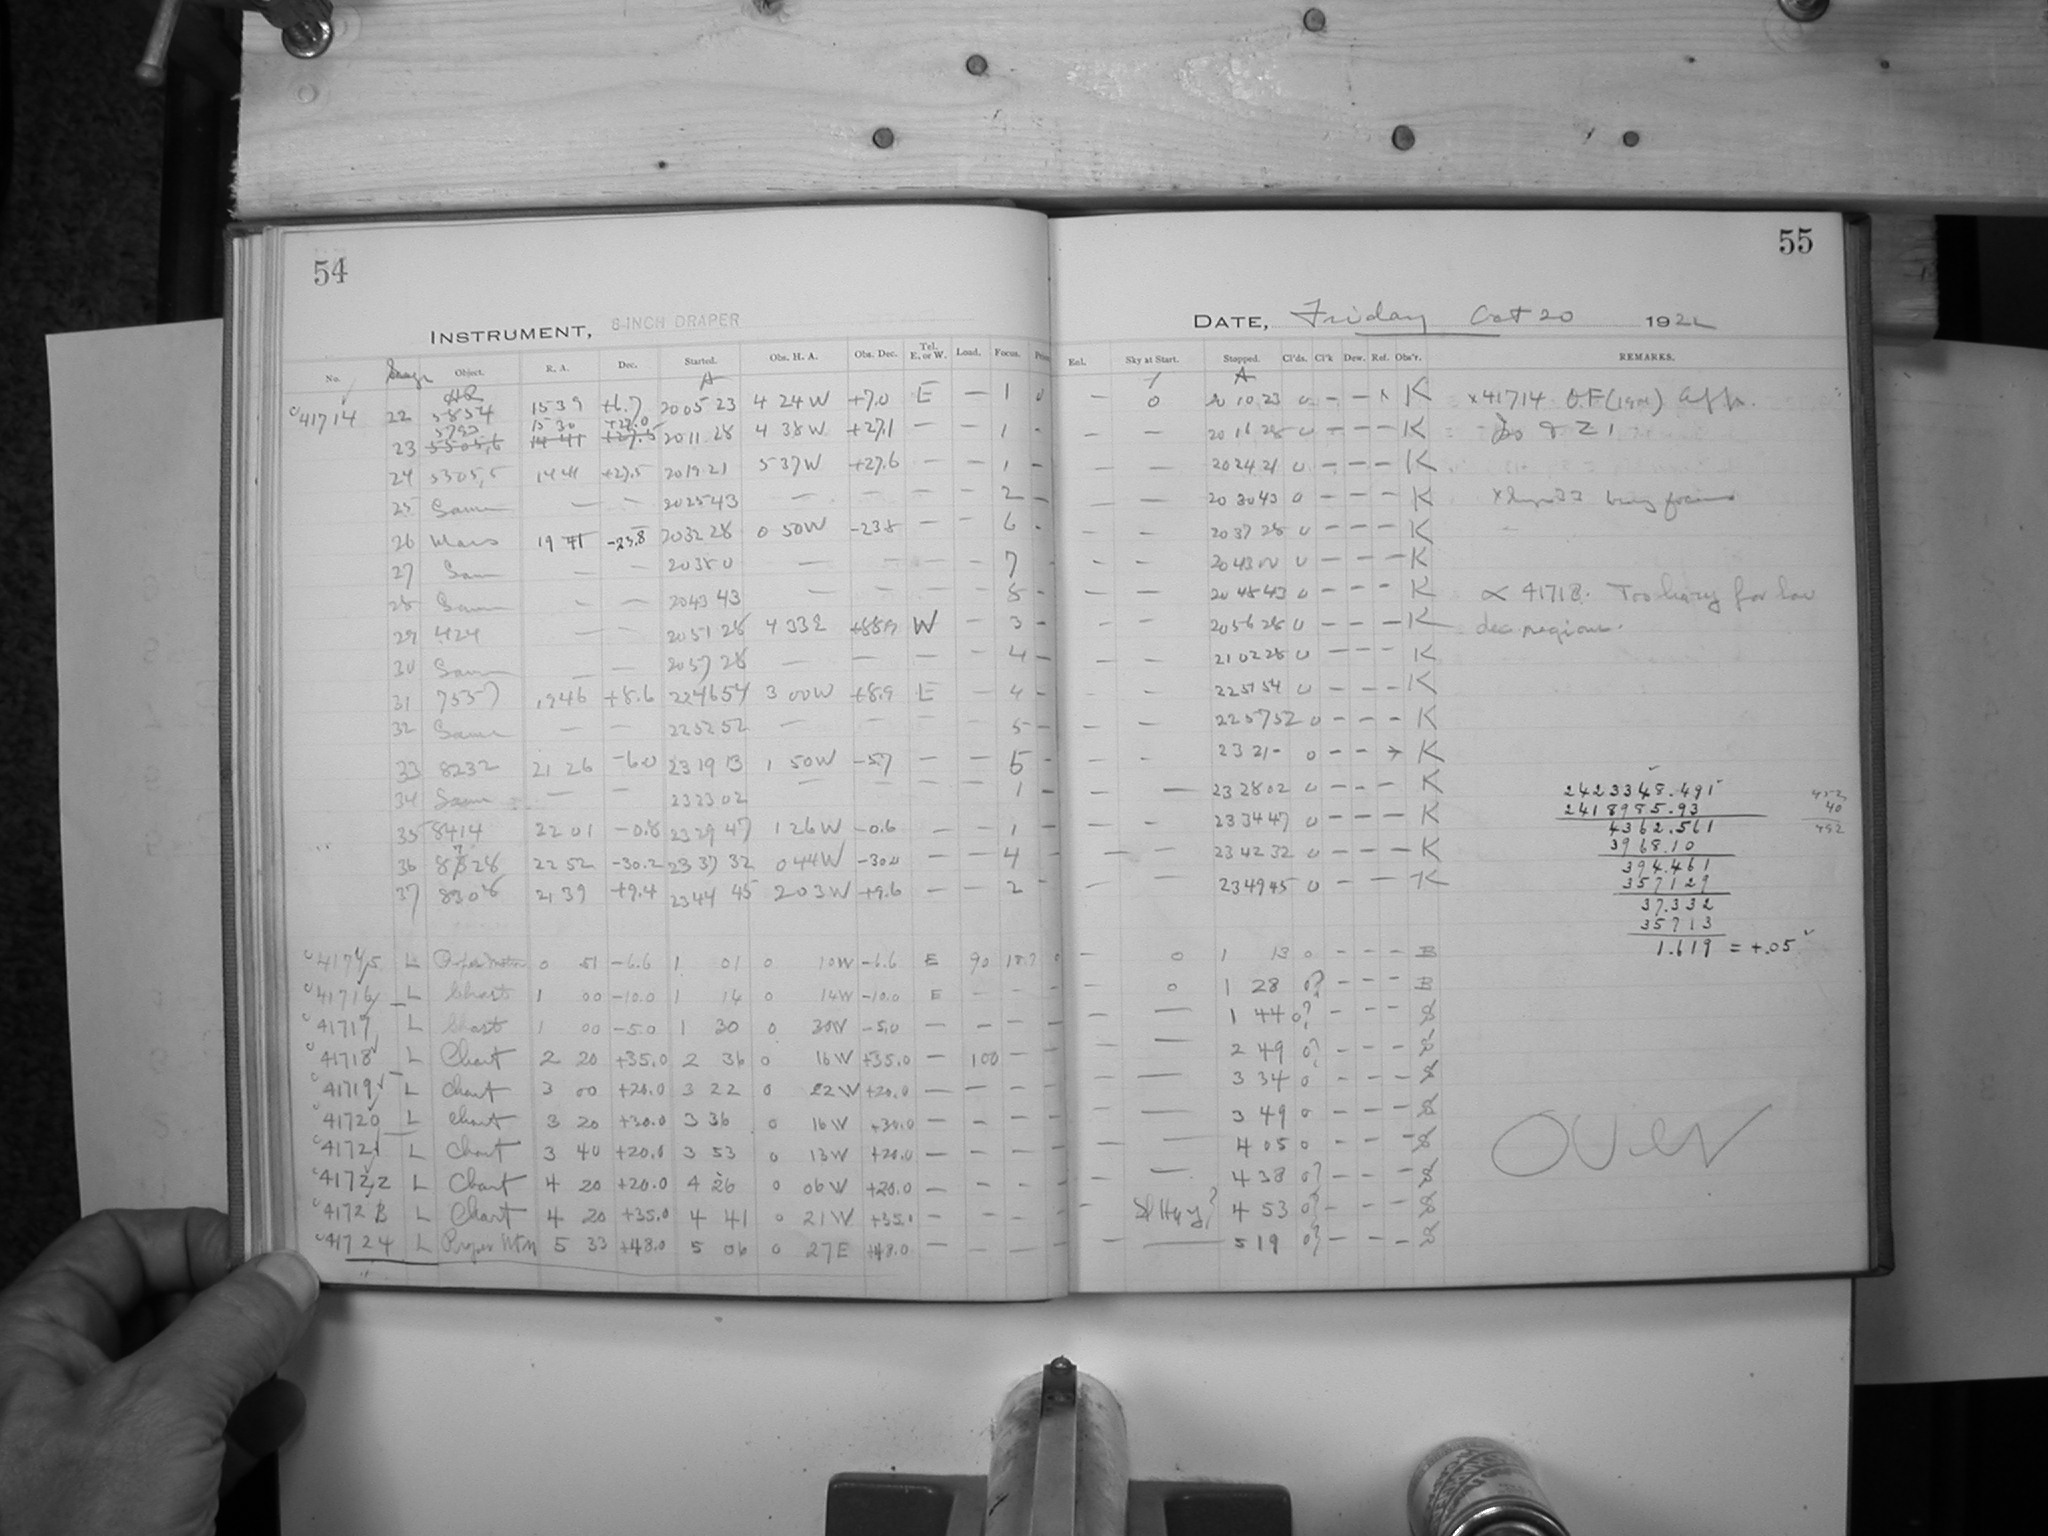 54
55
INSTRUMENT, 8-INCH DRAPER
DATE, Friday Oct 20 1922
No. Object. R. A. Dec. Started. Obs. H. A. Obs. Dec. Tel. E. or W. Load. Focus. Eol. Sky at Start. Stopped. Cl'ds. Cl'k Dew. Ref. Obs'r. REMARKS.
HR A A
41714 22 5854 15 39 +6.7 20 05 23 4 24 W +7.0 E — 1 — 0 20 10 23 0 — — K x41714
23 15 30 +27.0 20 11 28 4 38 W +27.1 — — 1 — — 20 16 28 0 — — — K
24 5505,6 14 41 +27.5 20 19 21 5 37 W +27.6 — — 1 — — 20 24 21 0 — — — K
25 Same — — 20 25 43 — — — — 2 — — — 20 30 43 0 — — — K
26 Mars 19 41 -23.8 20 32 28 0 50 W -23.8 — — 6 — — 20 37 28 0 — — — K
27 Same — — 20 38 0 — — — — 7 — — 20 43 00 0 — — — K
28 Same — — 20 43 43 — — — — 8 — — — 20 48 43 0 — — — K 41718. Too hazy for low
29 424 — — 20 51 28 4 33 E +88.9 W — 3 — — — 20 56 28 0 — — — K dec regions.
30 Same — — 20 57 28 — — — — 4 — — — 21 02 28 0 — — — K
31 7557 19 46 +8.6 22 46 54 3 00 W +8.9 E — 4 — — — 22 51 54 0 — — — K
32 Same — — 22 52 52 — — — — 5 — — — 22 57 52 0 — — — K
33 8232 21 26 -6.0 23 19 13 1 50 W -5.7 — — 5 — — — 23 21 - 0 — — K
34 Same — — 23 23 02 — — — — 1 — — — 23 28 02 0 — — — K
35 8414 22 01 -0.8 23 29 47 1 26 W -0.6 — — 1 — — — 23 34 47 0 — — — K
36 8728 22 52 -30.2 23 37 32 0 44 W -30.0 — — 4 — — — 23 42 32 0 — — — K
37 8308 21 39 +9.4 23 44 45 2 03 W +9.6 — — 2 — — — 23 49 45 0 — — — K
2423348.491
2418985.93
4362.561
3968.10
394.461
357129
37.332
35713
1.619 = +.05
452
40
492
41715 L Proper Motion 0 51 -6.6 1 01 0 10W -6.6 E 90 — 0 1 13 0 — — — B
41716 L Chart 1 00 -10.0 1 14 0 14W -10.0 E — — — 0 1 28 0? — — — B
41717 L Chart 1 00 -5.0 1 30 0 30W -5.0 — — — — — 1 44 0? — — — S
41718 L Chart 2 20 +35.0 2 36 0 16W +35.0 — 100 — — — 2 49 0? — — — S
41719 L Chart 3 00 +20.0 3 22 0 22W +20.0 — — — — — 3 34 0 — — — S
41720 L Chart 3 20 +30.0 3 36 0 16W +30.0 — — — — — 3 49 0 — — — S
41721 L Chart 3 40 +20.0 3 53 0 13W +20.0 — — — — — 4 05 0 — — — S
41722 L Chart 4 20 +20.0 4 26 0 06W +20.0 — — — — — 4 38 0? — — — S
41723 L Chart 4 20 +35.0 4 41 0 21W +35.1 — — — — Sl Hazy? 4 53 0? — — — S
41724 L Proper Mtn 5 33 +48.0 5 06 0 27E +48.0 — — — — — 5 19 0? — — — S
Over